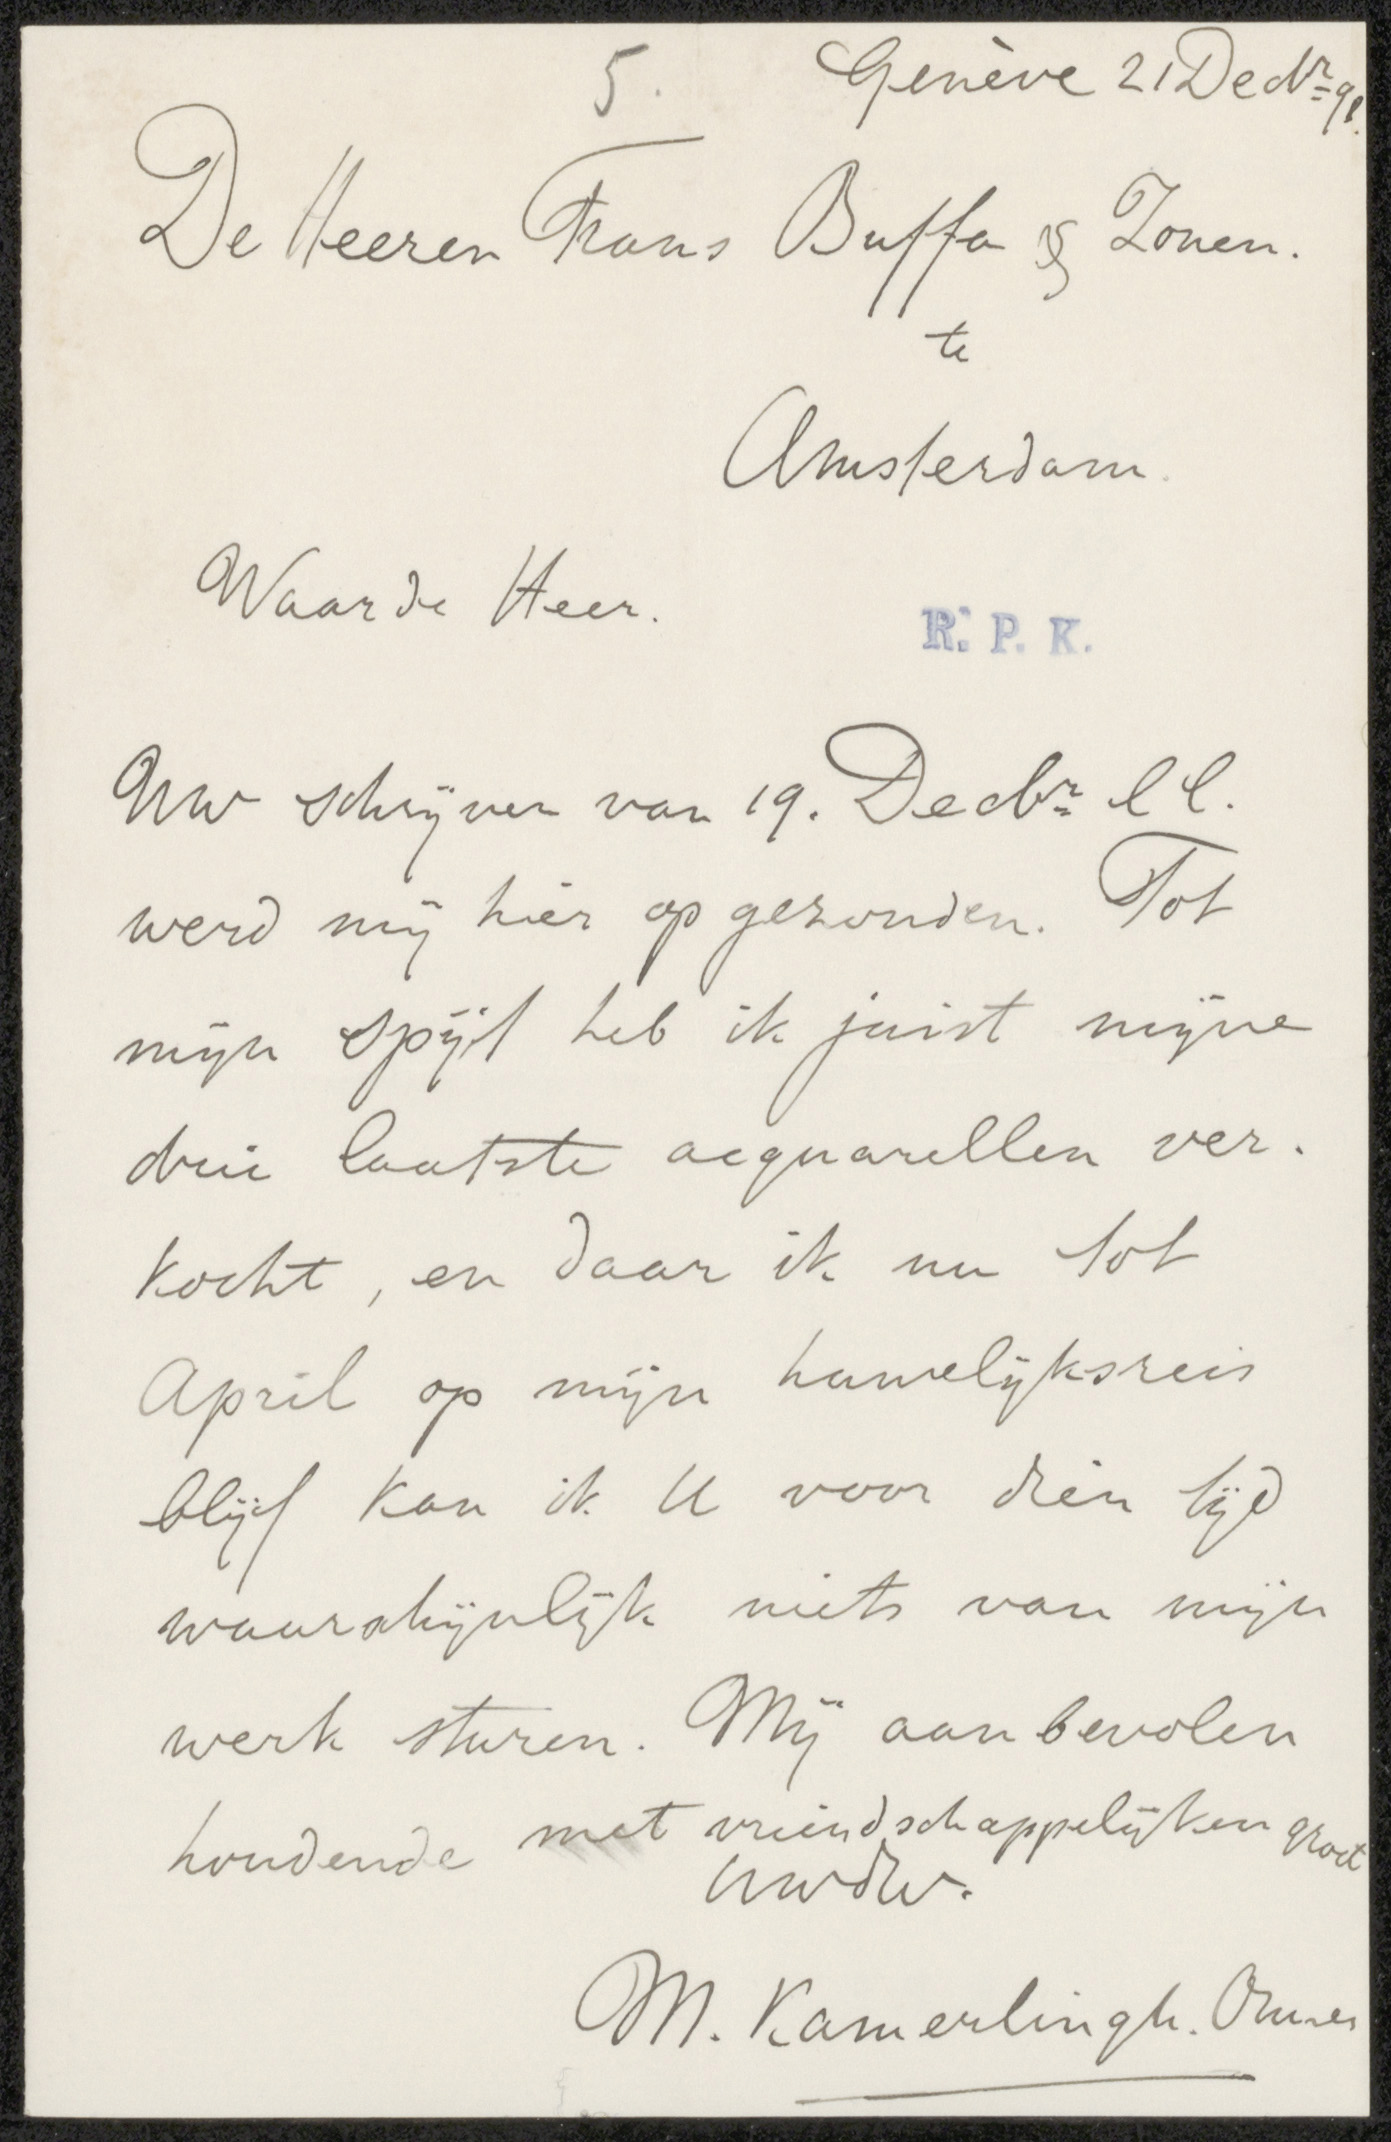 5.
Genève 21 Decbr 91.
De Heeren Frans Buffa & Zonen.
te
Amsterdam.
Waarde Heer.
R. P. K.
Uw schrijven van 19. Decbr ll.
werd mij hier op gezonden. Tot
mijn spijt heb ik juist mijne
drie laatste acquarellen ver-
kocht, en daar ik nu tot
April op mijn huwelijksreis
blijf kan ik U voor dien tijd
waarschijnlijk niets van mijn
werk sturen. Mij aanbevolen
houdende met vriendschappelijken groet
Uwdw.
M. Kamerlingh. Onnes